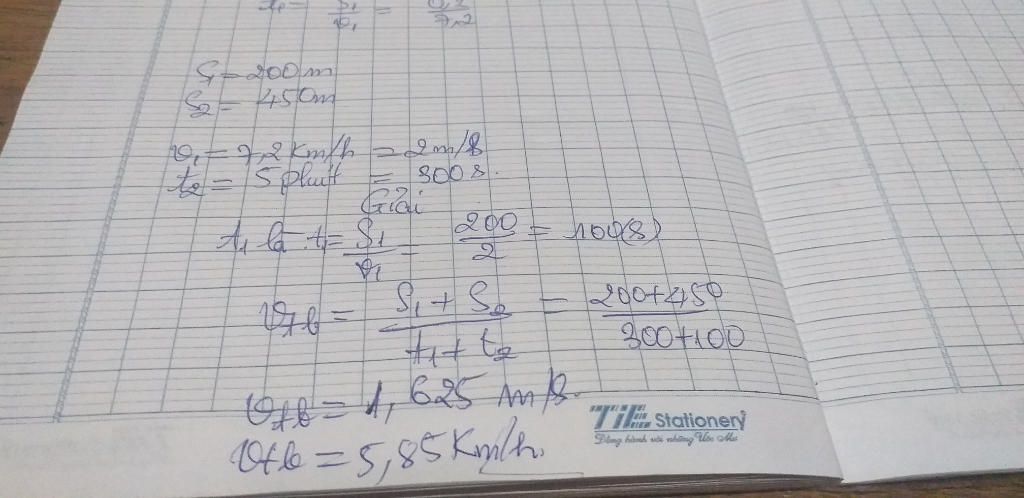 t₁ = S₁/v₁ = 0,2/7,2
S₁ = 200m
S₂ = 450m
v₁ = 7,2 Km/h = 2m/s
t₂ = 5 phút = 300s.
Giải
t₁ là : t₁ = S₁/v₁ = 200/2 = 100(s)
vtb = (S₁ + S₂)/(t₁ + t₂) = (200+450)/(300+100)
vtb = 1,625 m/s.
vtb = 5,85 Km/h.
TiE Stationery
Đồng hành với những Ước Mơ